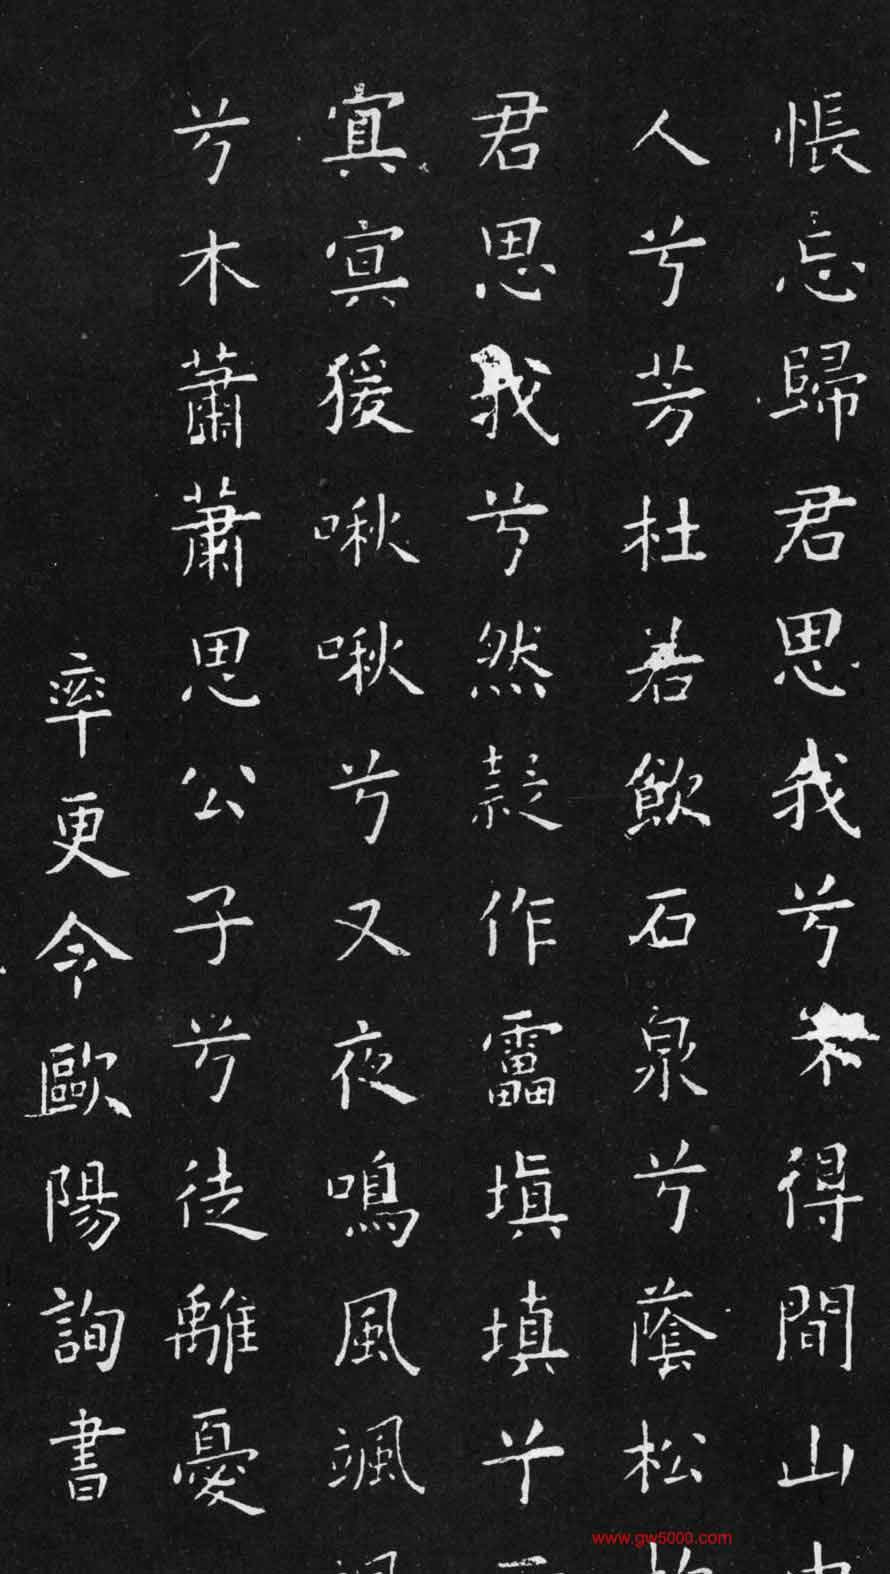 悵忘歸君思我兮不得間山
人兮芳杜若飲石泉兮蔭松
君思我兮然疑作靁填填兮
冥冥猨啾啾兮又夜鳴風颯
兮木蕭蕭思公子兮徒離憂
率更令歐陽詢書
www.gw5000.com